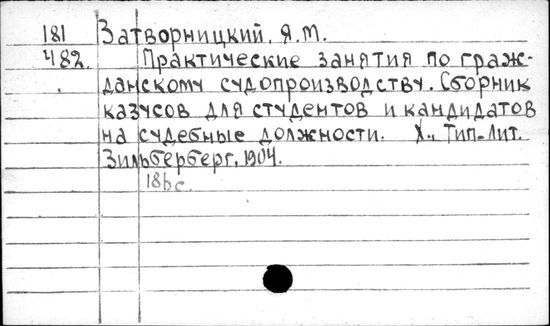 181 Затворницкий, Я.М.
482. Практические занятия по граж-
данскому судопроизводству. Сборник
казусов для студентов и кандидатов
на судебные должности. Х., Тип-Лит.
Зильберберг, 1904.
18bc.